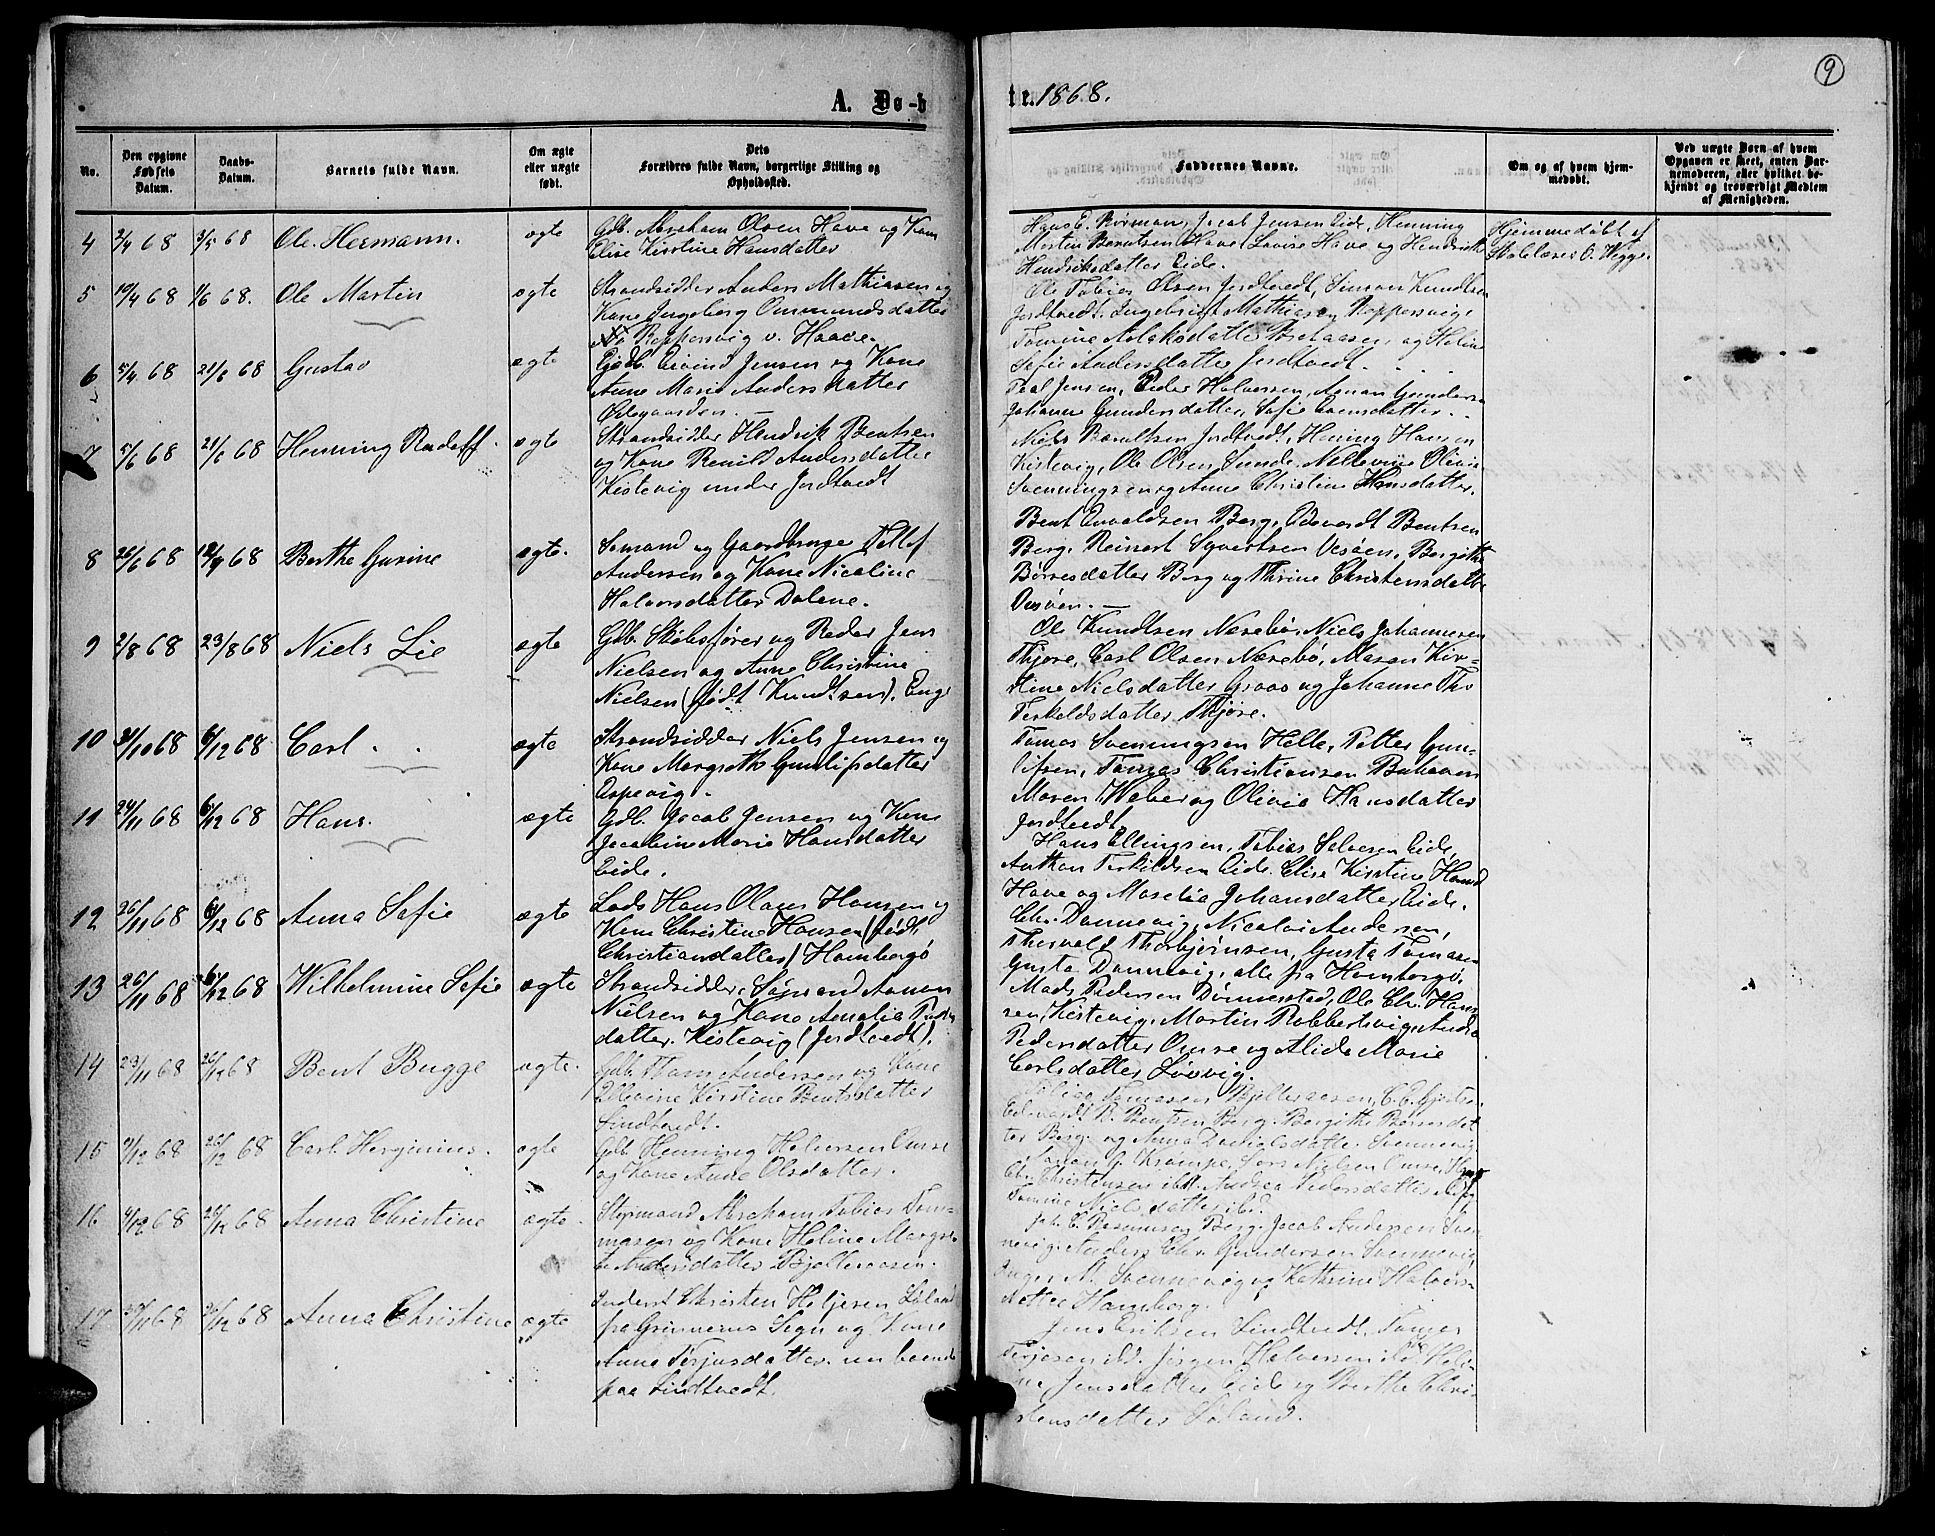 9
A. Dø-b
te. 1868.
No.
Den opgivne Fødsels Datum.
Daabs-Datum.
Barnets fulde Navn.
Om ægte eller uægte født.
Dets Forældres fulde Navn, borgerlige Stilling og Opholdssted.
Faddernes Navne.
Om og af hvem hjemmedøbt.
Ved uægte Børn af hvem Opgaven er skeet, enten Barnemoderen, eller hvilket bekjendt og troværdigt Medlem af Menigheden.
4 2/4 68 3/5 68 Ole Hermann. ægte
Gdb. Abraham Olsen Have og Kone
Elise Kirstine Hansdatter
Hans E. Jacob Jensen Eide, Henning
Martin Berntsen Have, Lovise Have og Hendrikke
Hendriksdatter Eide.
Hjemmedøbt af
Skolelærer O. Wigge.
5 19/4 68 1/6 68. Ole Martin ægte
Strandsidder Anders Mathiasen og
Kone Ingeborg Ommundsdatter
Reppersvig v. Haave.
Ole Tobias Olsen Jortvedt, Simon Knudsen
Jortvedt, Ingebrigt Mathiasen Reppersvig,
Tomine Aslaksdatter og Heline
Sofie Andersdatter Jortvedt.
6 5/4 68 21/6 68 Gustav ægte
Gdb. Eivind Jensen og Kone
Anne Marie Andersdatter
Ødegaarden.
Taal Jensen, Peder Halvorsen, Aanon Gundersen
Johanne Gundersdatter, Sofie Evensdatter.
7 5/6 68 21/6 68 Henning Rudolf. ægte
Strandsidder Hendrik Bentsen
og Kone Renild Andersdatter
Kistevig under Jortvedt
Niels Berntsen Jortvedt, Hening Hansen
Kistevig, Ole Olsen Sunde, Nellevine Olivie
Svenningsen og Anne Christine Hansdatter.
8 26/6 68 12/7 68 Berthe Gurine ægte.
Sømand og Gaardbruger Tellef
Andersen og Kone Nicoline
Halvorsdatter Dalene.
Bent Osvaldsen Berg, Edevardt Bentsen
Berg, Reinert Syvertsen Vesøen, Bergithe
Børresdatter Berg og Thrine Christensdatter
Vesøen.
9 2/8 68 23/8 68 Niels Lie ægte
Gdb. Skibsfører og Reder Jens
Nielsen og Anne Christine
Nielsen (født Knudtsen). Enge
Ole Knudtsen Næsebø, Niels Johannesen
Thjøre, Carl Olsen Næsebø, Maren Kir-
stine Nielsdatter Groos og Johanne Tho
Terkeldsdatter Thjøre.
10 31/10 68 6/12 68 Carl. ægte
Strandsidder Niels Jensen og
Kone Margrethe Gunlifsdatter
Aspevig.
Tomas Svenningsen Helle, Petter Gun-
lifsen, Tomas Christiansen Buhaven
Maren Weber og Olivia Hansdatter
Jortvedt.
11 24/11 68 6/12 68 Hans. ægte
Gdb. Jacob Jensen og Kone
Jacobine Marie Hansdatter
Eide.
Hans Ellingsen, Tobias Salvesen Eide,
Anthon Terkildsen Eide, Elise Kirstine Hansd
Have og Johansdatter Eide.
12 26/11 68 6/12 68 Anna Sofie ægte
Lods Hans Olaus Hansen og
Kone Christine Hansen (født
Christiansdatter) Homborgø
Chr. Dannevig, Nicolai Andersen,
Thorvald Thorbjørnsen, Gusta Tomasen
Gusta Dannevig, alle fra Homborgø.
13 26/11 68 6/12 68 Wilhelmine Sofie ægte
Strandsidder, Sømand Aanon
Nielsen og Kone Amalia
datter. Kistevig (Jortvedt).
Mads Pedersen Dømmestad, Ole Chr. Han-
sen, Kistevig, Martin Robbersvig,
Pedersdatter Omre og Alide Marie
Carlsdatter Løvvig.
14 23/11 68 26/12 68 Bent Bugge ægte.
Gdb. Andersen og Kone
Ellevine Kirstine Bentsdatter
Lindtvedt.
Tobias Tomasen Bjelleraasen,
Edevardt B. Bentsen Berg, Bergithe Børresdat
ter Berg og Anna Danielsdatter Svennevig
15 9/12 68 26/12 68 Carl Herginius. ægte
Gdb. Henning Halvorsen Omre
og Kone Anne Olsdatter.
Nielsen Omre,
Chr. Christensen ibd. Andrea Pedersdatter
Tomine Nielsdatter ibd.
16 4/12 68 26/12 68 Anna Christine ægte.
Styrmand Abraham Tobias Tom-
masen og Kone Heline Margre-
te Andersdatter Bjelleraasen.
Joh. C. Rasmusen Berg, Jacob Andersen Sven-
nevig, Anders Chr. Gundersen Svennevig
Svennevig og Kathrine Halvors-
datter Homborg.
17 30/11 68 26/12 68 Anna Christine ægte
Inderst Christen Heljesen Løland
fra Sogn og Kone
Anne Terjusdatter. nu boende
paa Lindtvedt.
Jens Eriksen Lindtvedt, Tomas
Terjesen ibd. Jørgen Halvorsen ibd.
Jensdatter Eide og Berthe Chri-
stensdatter Løland.